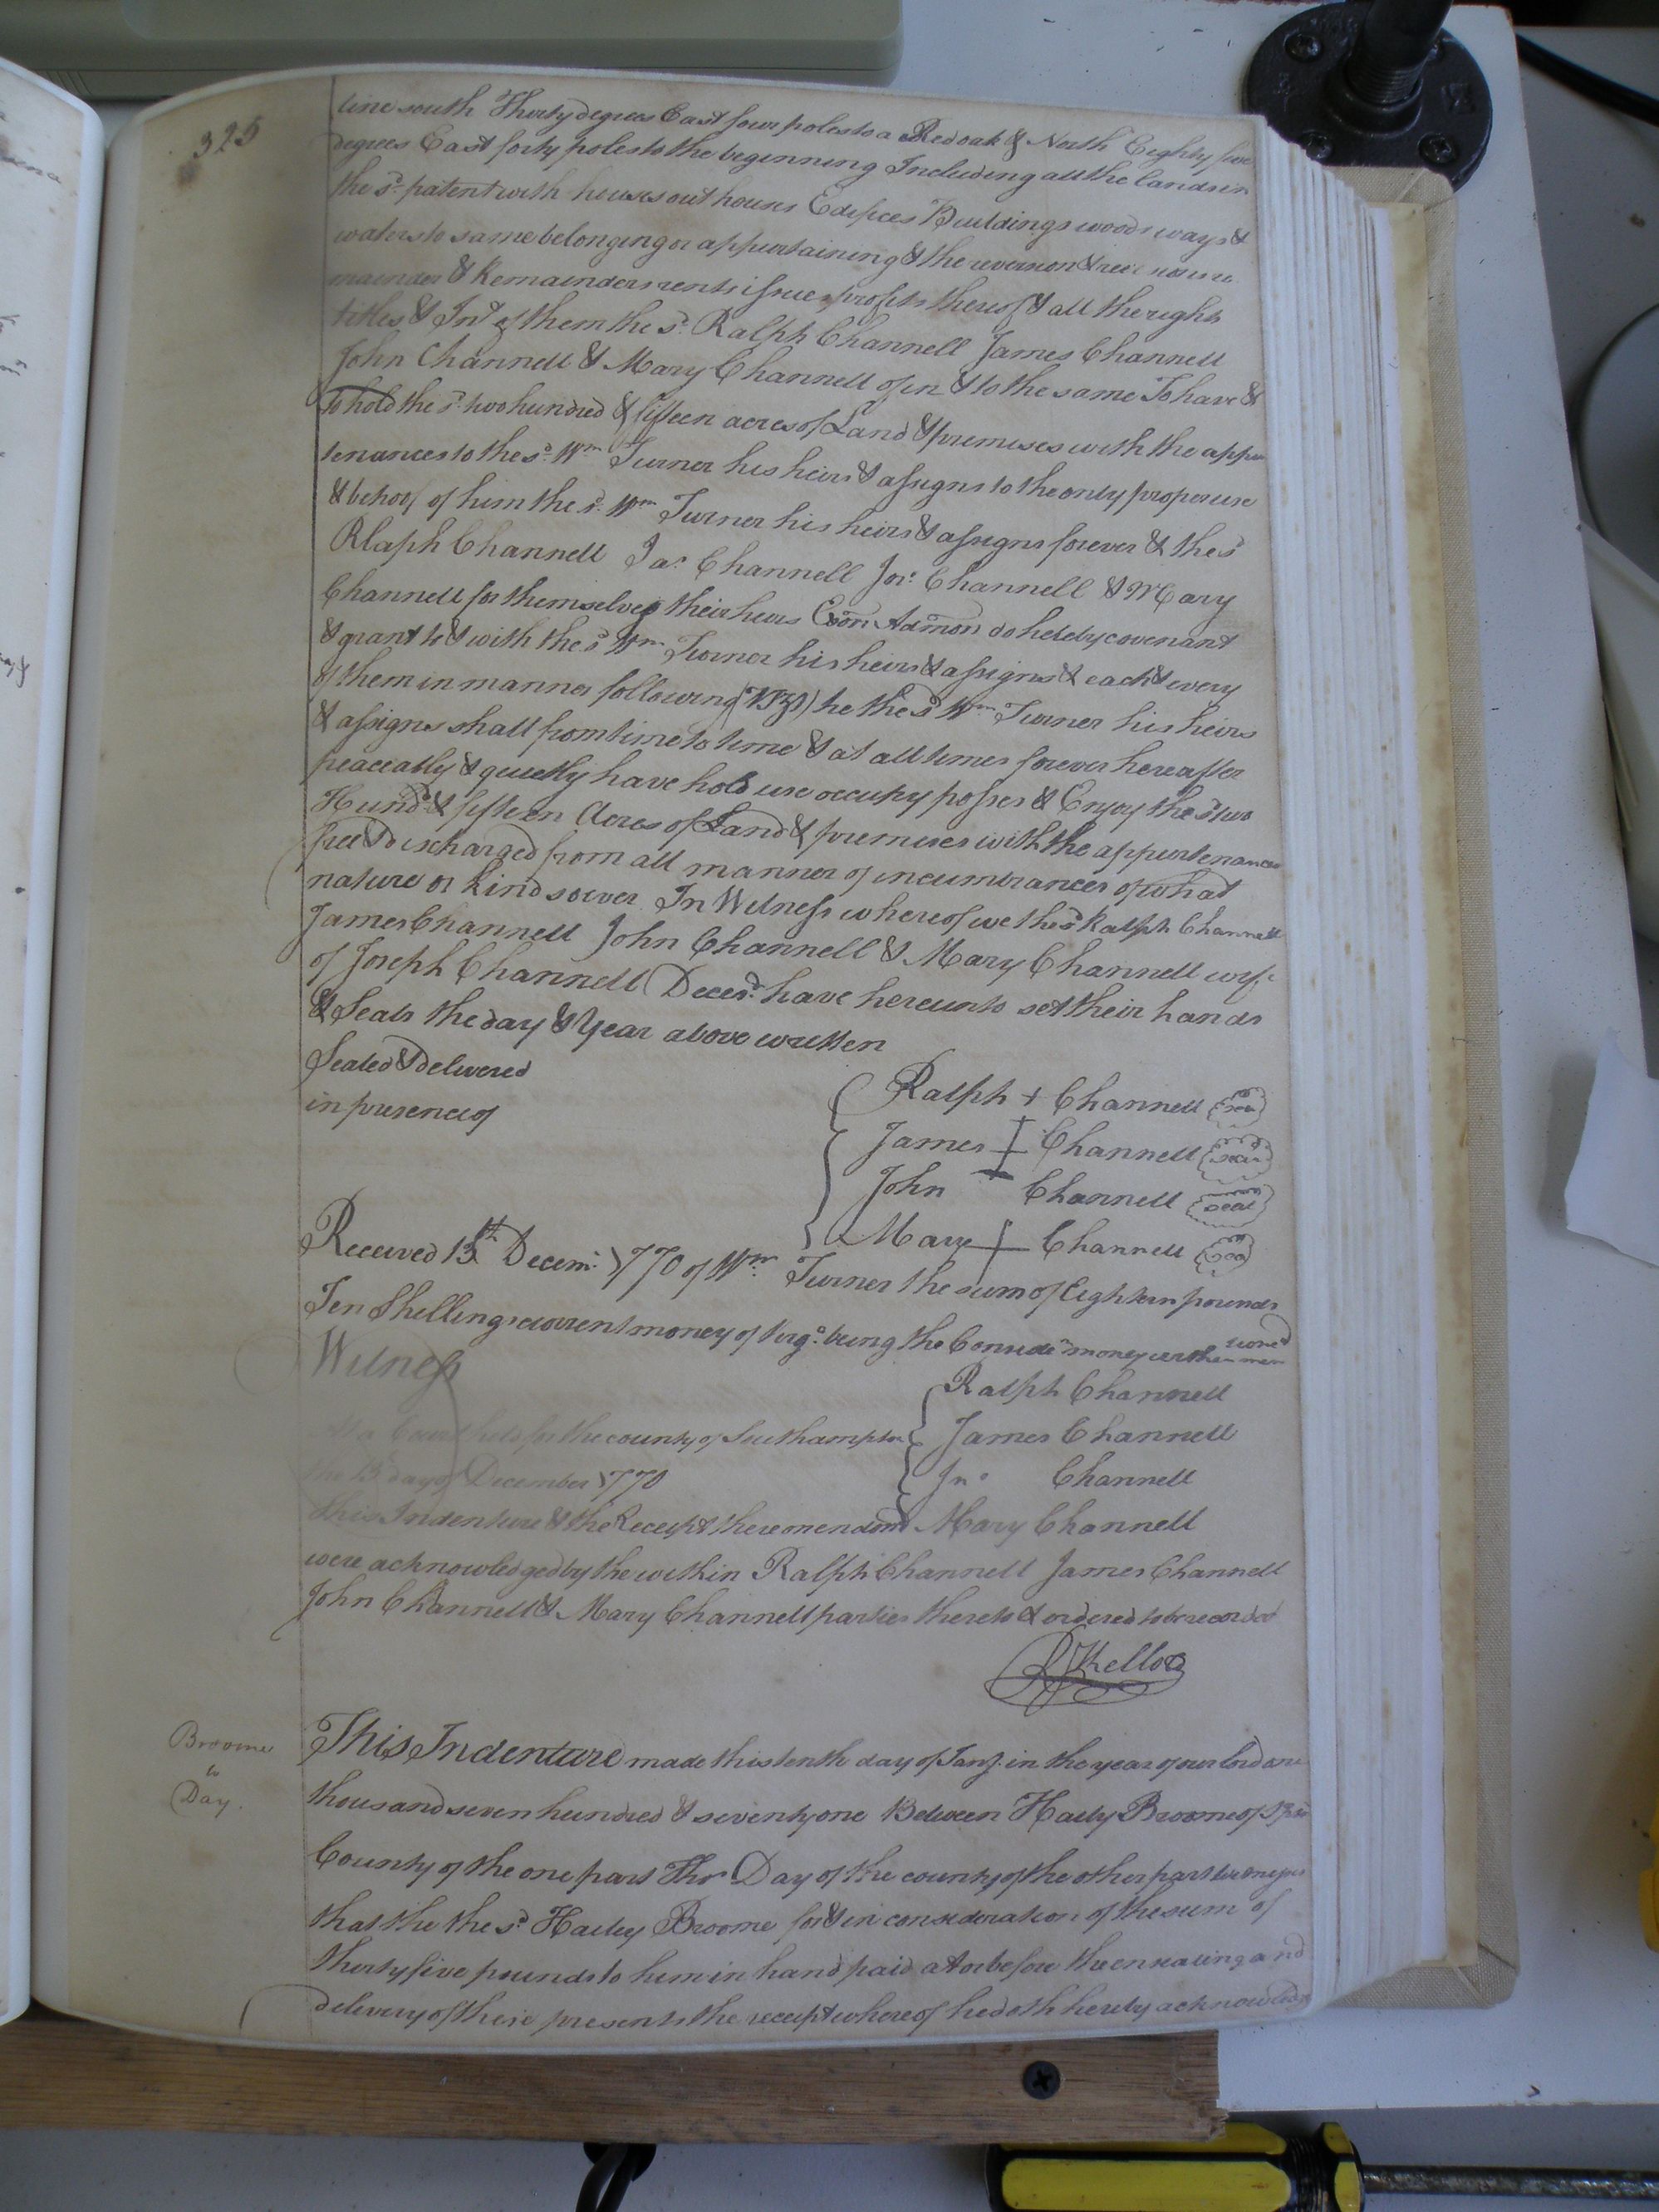 325
line south Thirty degrees East four poles to a Red oak & North Eighty five
degrees East forty poles to the beginning Including all the lands in
the sd. patent with houses out houses Edifices Buildings woods ways &
waters to same belonging or appurtaining & the reversion &
mainder & Remainders rents issues profits thereof & all the right
titles & Int. of them the sd. Ralph Channell James Channell
John Channell & Mary Channell of in & to the same To have &
to hold the sd. two hundred & fifteen acres of Land & premises with the appur
tenances to the sd. Wm Turner his heirs & assigns to the only proper use
& behoof of him the sd. Wm Turner his heirs & assigns forever & the sd
Rlaph Channell Jas. Channell Jno. Channell & Mary
Channell for themselves their heirs Exon Admon do hereby covenant
& grant to & with the sd Wm Turner his heirs & assigns & each & every
of them in manner following (VIZ) he the sd Wm Turner his heirs
& assigns shall from time to time & at all times forever hereafter
peaceably & quietly have hold use occupy posses & Enjoy the sd two
Hundd. & fifteen Acres of Land & premises with the appurtenances
free & discharged from all manner of incumbrances of what
nature or kind soever In Witness whereof we the sd Ralph Channell
James Channell John Channell & Mary Channell wife
of Joseph Channell Decesd. have hereunto set their hands
& Seals the day & Year above written
Sealed & delivered
in presence of
Ralph + Channell seal
James + Channell seal
John + Channell seal
Mary + Channell seal
Received 13th Decem. 1770 of Wm. Turner the sum of Eighteen pounds
Ten Shillings current money of Virga. being the Conside money within men
tioned
Witness
Ralph Channell
At a Court held for the county of Southampton James Channell
the 13 day of December 1770 Jno Channell
This Indenture & the Receipt there on endorsd Mary Channell
were acknowledged by the within Ralph Channell James Channell
John Channell & Mary Channell parties thereto & ordered to be recorded
R Kello
Broome
to
Day.
This Indenture made this tenth day of Jany. in the year of our lord one
thousand seven hundred & seventy one Between Haily Broome of
County of the one part Thos Day of the county of the other part
that the the sd. Hailey Broome for & in consideration of the sum of
thirty five pounds to him in hand paid at or before the ensealing and
delivery of these presents the receipt whereof he doth hereby acknowledge